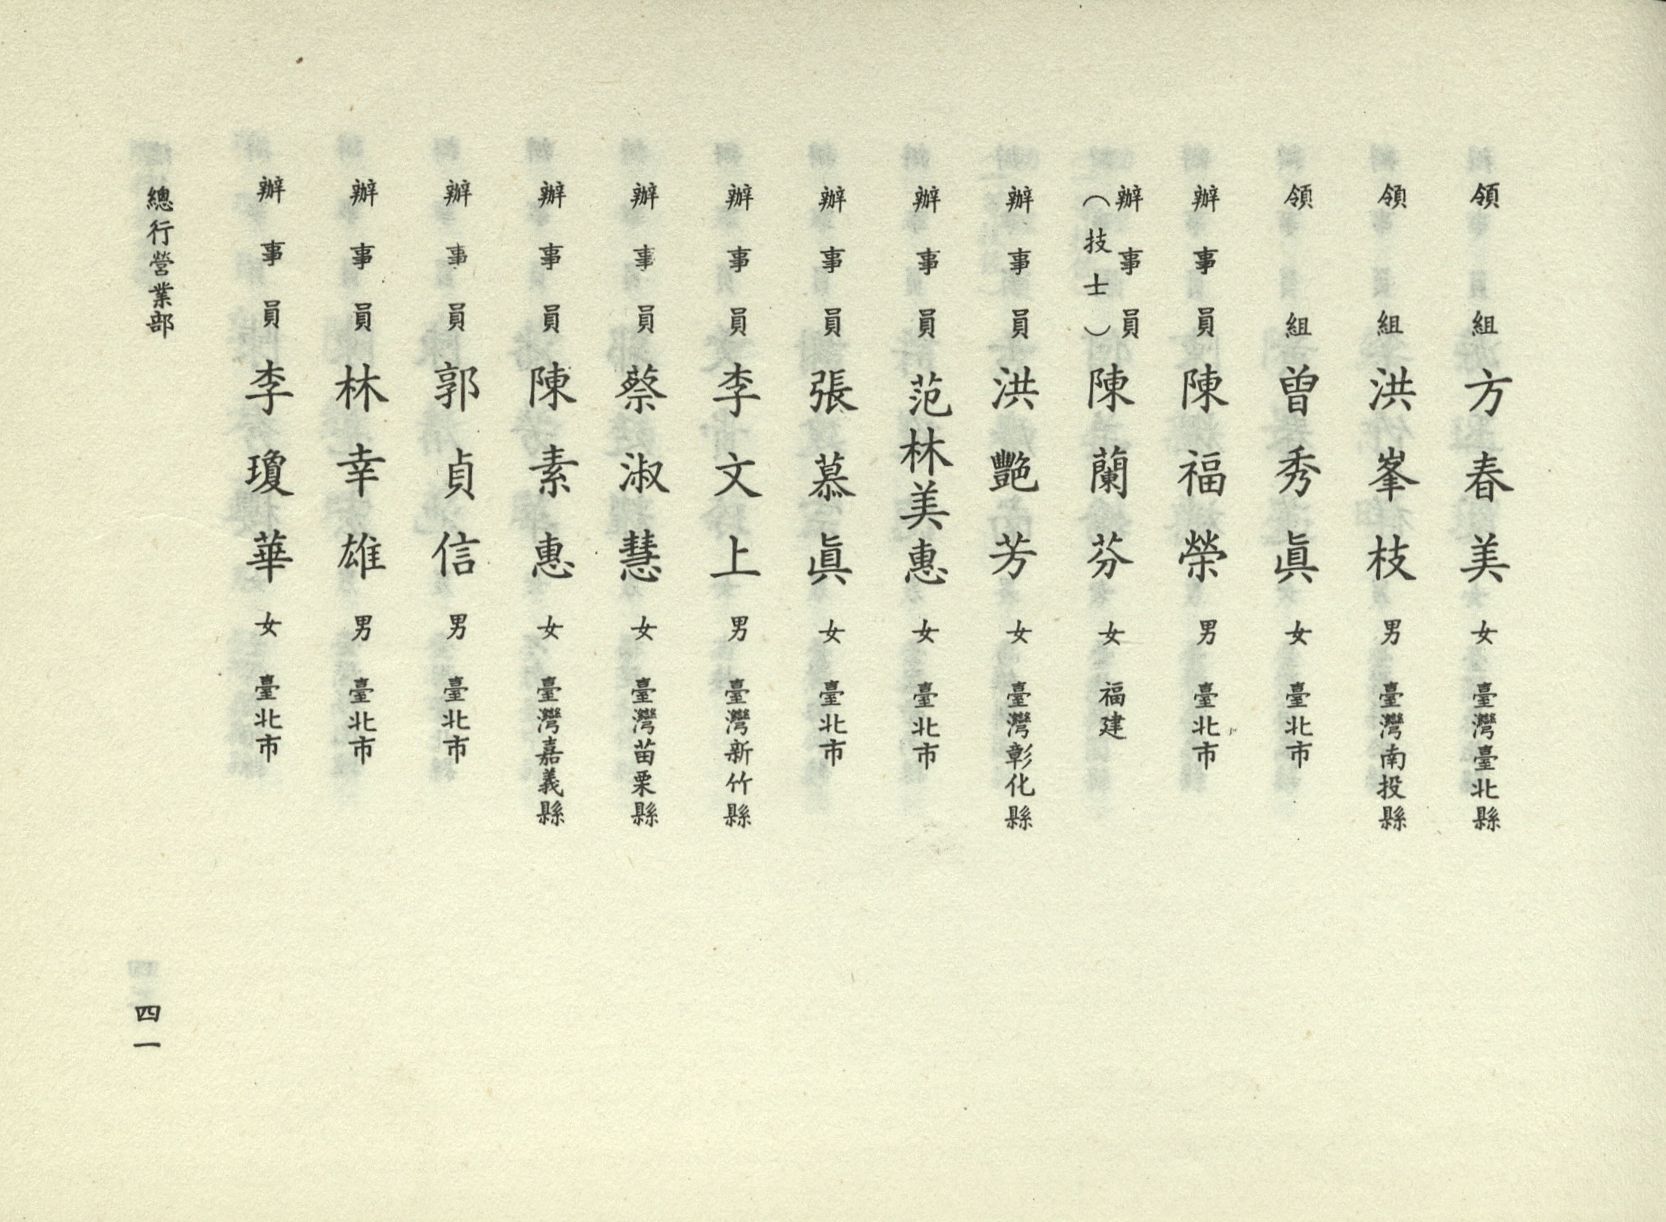 領組 方春美 女 臺灣臺北縣
領組 洪峯枝 男 臺灣南投縣
領組 曾秀眞 女 臺北市
辦事員 陳福榮 男 臺北市
辦事員（技士） 陳蘭芬 女 福建
辦事員 洪艷芳 女 臺灣彰化縣
辦事員 范林美惠 女 臺北市
辦事員 張慕眞 女 臺北市
辦事員 李文上 男 臺灣新竹縣
辦事員 蔡淑慧 女 臺灣苗栗縣
辦事員 陳素惠 女 臺灣嘉義縣
辦事員 郭貞信 男 臺北市
辦事員 林幸雄 男 臺北市
辦事員 李瓊華 女 臺北市
總行營業部
四一